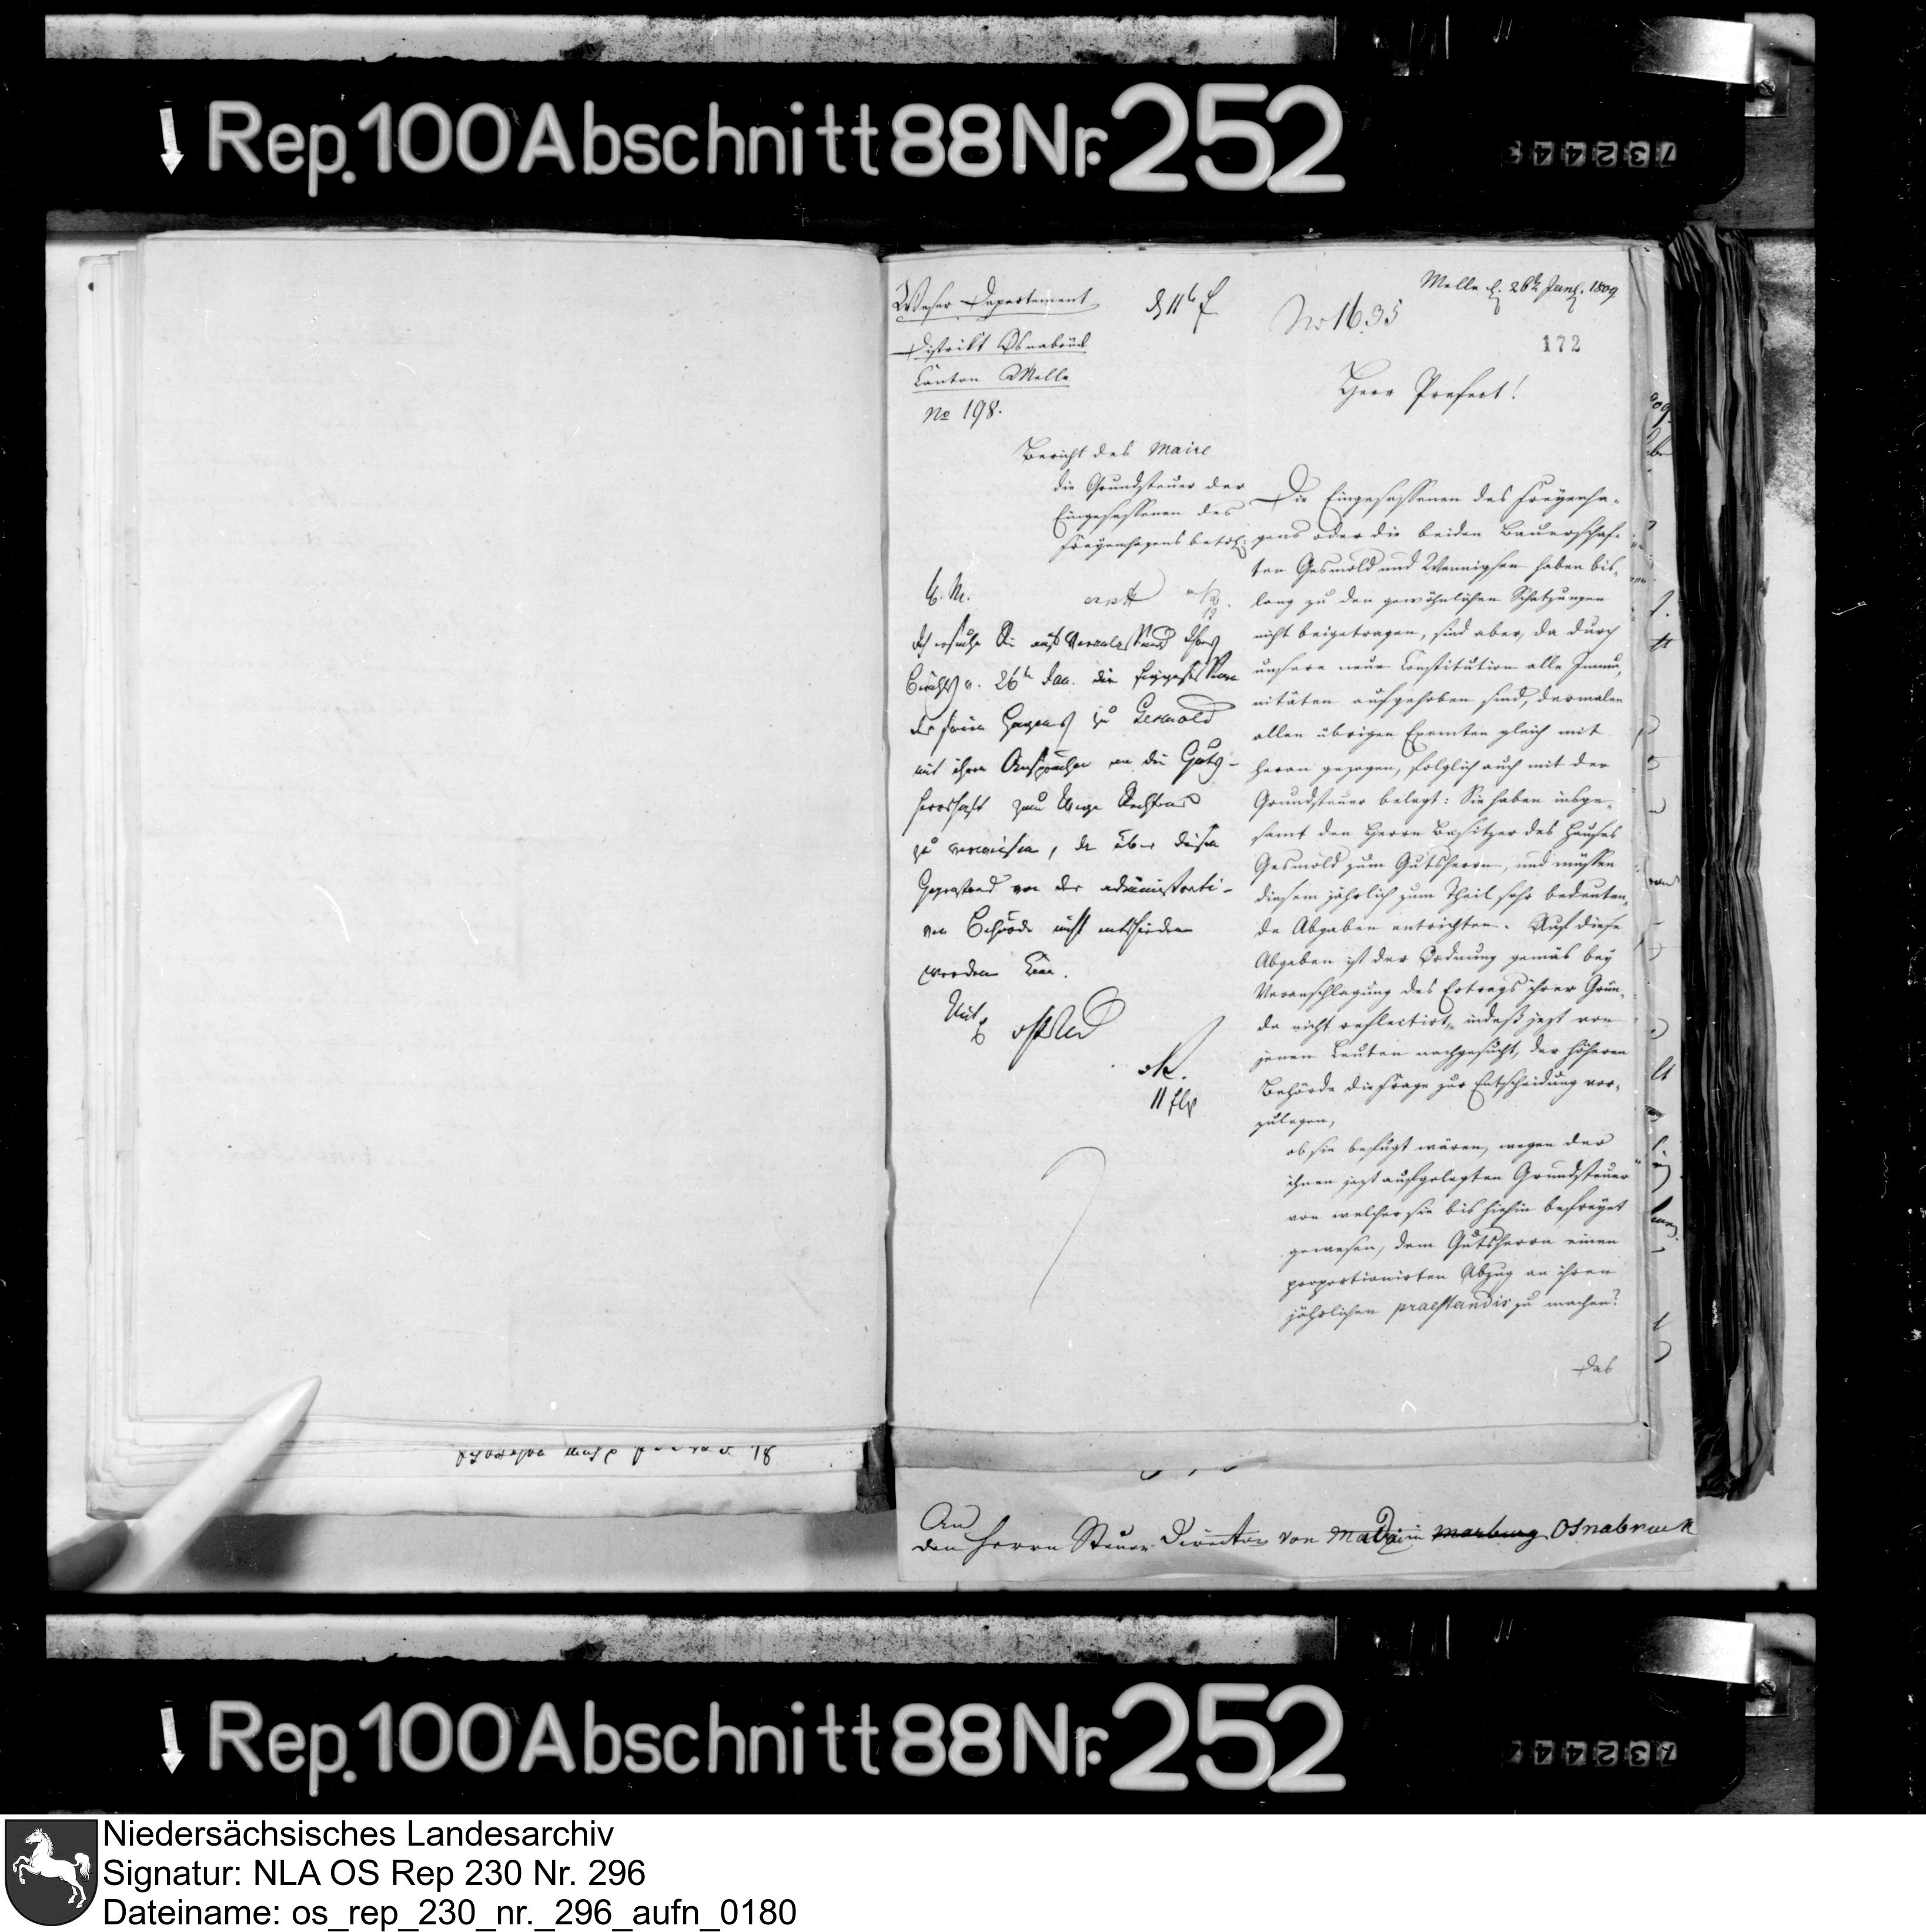 Rep.100 Abschnitt 88 Nr. 252
73244
Weser Departement
Distrikt Osnabrück
Canton Melle
No 198.
Melle d. 26t Jan. 1809
No 1635
172
Herr Prefect!
Bericht des Maire
die Grundsteuer der
Eingesessenen des
Freyenhagens betrf:
Die Eingesessenen des Freyenha-
gens oder die beiden Bauerschaf-
ten Gesmold und Wennigsen haben bis-
lang zu den gewöhnlichen Schatzungen
nicht beigetragen, sind aber, da durch
unsere neue Constitution alle Immu-
nitäten aufgehoben sind, dermalen
allen übrigen Exemten gleich mit
heran gezogen, folglich auch mit der
Grundsteuer belegt: Sie haben insge-
samt den Herrn Besitzer des Hauses
Gesmold zum Gutsherrn, und müssen
diesem jährlich zum Theil sehr bedeuten-
de Abgaben entrichten. Auf diese
Abgaben ist der Ordnung gemäs bey
Veranschlagung des Ertrags ihrer Grün-
de nicht reflectirt, indeß jezt von
jenen Leuten nachgesucht, der höheren
Behörde die Frage zur Entscheidung vor-
zulegen,
ob sie befugt wären, wegen der
ihnen jezt aufgelegten Grundsteuer
von welcher sie bis hiehin befreyet
gewesen, dem Gutsherrn einen
proportionirten Abzug an ihren
jährlichen praestandis zu machen?
Das
H. M.
Ich ersuche Sie auf Veranlassung Ihres
Berichts v. 26t Jan. die Eingesessenen
des freien Hagens zu Gesmold
mit ihren Ansprüchen an die Guts-
herrschaft zum Wege Rechtens
zu verweisen, da über diesen
Gegenstand von der administrati-
ven Behörde nicht entschieden
werden kann.
11
An
den Herrn Steuer Director von Osnabrück
Rep.100 Abschnitt 88 Nr. 252
73244
Niedersächsisches Landesarchiv
Signatur: NLA OS Rep 230 Nr. 296
Dateiname: os_rep_230_nr._296_aufn_0180